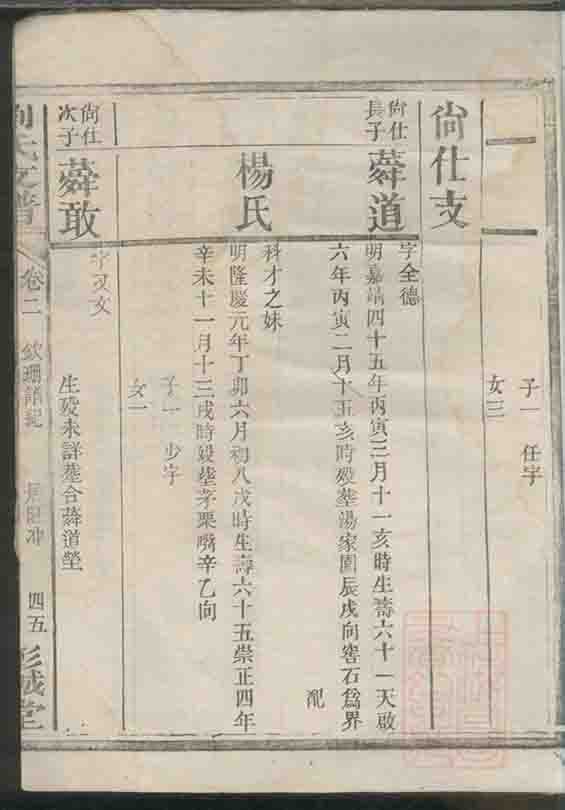 子一 任字
女三
尙仕支
尙仕
長子
蕣道
字全德
明嘉靖四十五年丙寅三月十一亥時生壽六十一天啟
六年丙寅二月十五亥時歿塟湯家園辰戌向窖石爲界
配
楊氏
科才之妹
明隆慶元年丁卯六月初八戌時生壽六十五崇正四年
辛未十一月十三戌時歿塟茅栗嘴辛乙向
子一 少字
女一
尙仕
次子
蕣敢
字
生歿未詳塟合蕣道塋
卷二
四五
彭城堂